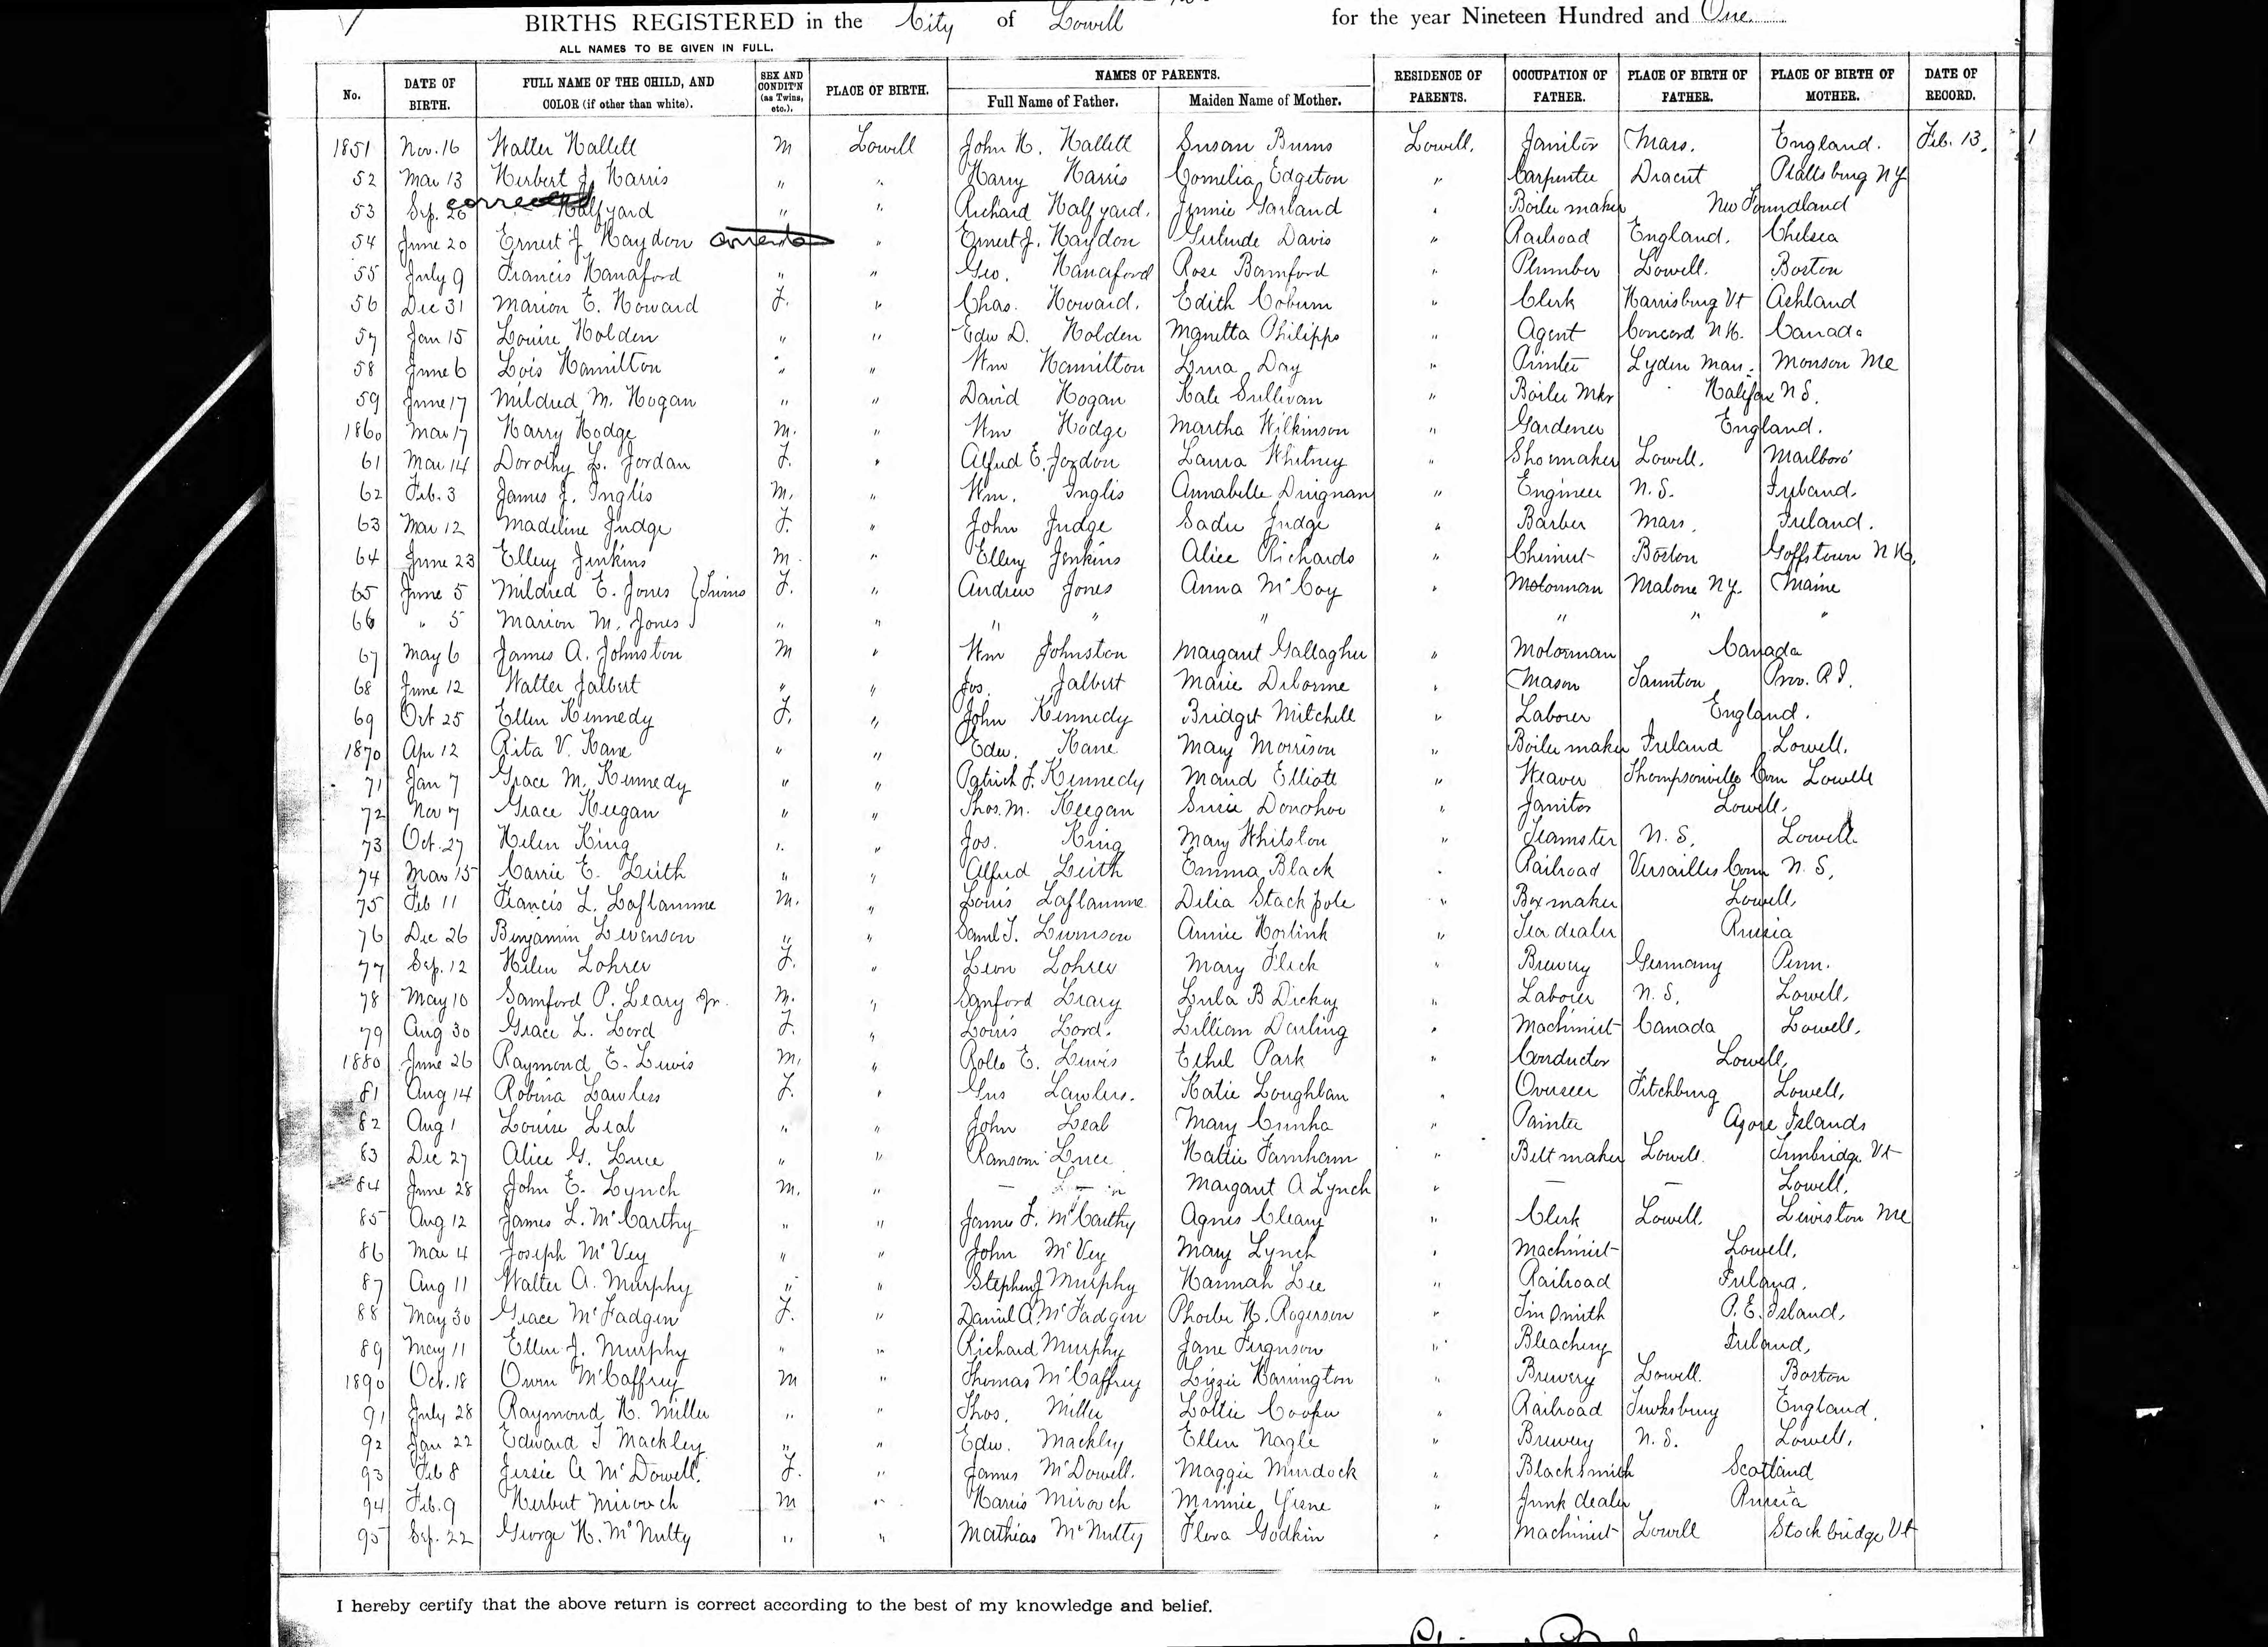 BIRTHS REGISTERED in the City of Lowell for the year Nineteen Hundred and One
ALL NAMES TO BE GIVEN IN FULL.
No. DATE OF BIRTH. FULL NAME OF THE CHILD, AND COLOR (if other than white). SEX AND CONDIT'N (as Twins, etc.). PLACE OF BIRTH. NAMES OF PARENTS. Full Name of Father. Maiden Name of Mother. RESIDENCE OF PARENTS. OCCUPATION OF FATHER. PLACE OF BIRTH OF FATHER. PLACE OF BIRTH OF MOTHER. DATE OF RECORD.
1851 Nov. 16 Walter Hallett M Lowell John H. Hallett Susan Burns Lowell. Janitor Mass. England. Feb. 13. 1
52 Mar 13 Herbert J. Harris " " Harry Harris Cornelia Edgeton " Carpenter Dracut Plattsburg NY
53 Sep. 26 Halfyard " " Richard Halfyard. Jennie Garland " Boiler maker New Foundland
54 June 20 Ernest J. Haydon " Ernest J. Haydon Gertrude Davis " Railroad England. Chelsea
55 July 9 Francis Hanaford " " Geo. Hanaford Rose Bamford " Plumber Lowell. Boston
56 Dec 31 Marion E. Howard F. " Chas. Howard. Edith Coburn " Clerk Harrisburg Vt Ashland
57 Jan 15 Louise Holden " " Edw D. Holden Philipps " Agent Concord N.H. Canada
58 June 6 Lois Hamilton " " Wm Hamilton Lena Day " Printer Lyden Mass. Monson Me
59 June 17 Mildred M. Hogan " " David Hogan Kate Sullivan " Boiler Mkr Halifax N.S.
1860 Mar 17 Harry Hodge M. " Wm Hodge Martha Wilkinson " Gardener England.
61 Mar 14 Dorothy L. Jordan F. " Alfred E. Jordon Laura Whitney " Shoemaker Lowell. Marlboro
62 Feb. 3 James J. Inglis M. " Wm. Inglis Annabelle Duignan " Engineer N.S. Ireland.
63 Mar 12 Madeline Judge F. " John Judge Sadie Judge " Barber Mass. Ireland.
64 June 23 Ellery Jenkins M. " Ellery Jenkins Alice Richards " Chemist Boston Goffstown N.H.
65 June 5 Mildred E. Jones } Twins F. " Andrew Jones Anna McCoy " Motorman Malone N.Y. Maine
66 " 5 Marion M. Jones } " " " " " " "
67 May 6 James A. Johnston M " Wm Johnston Margaret Gallagher " Motorman Canada
68 June 12 Walter Jalbert " " Jos. Jalbert Marie Delorme " Mason Taunton Prov. R.I.
69 Oct 25 Ellen Kennedy F. " John Kennedy Bridget Mitchell " Laborer England.
1870 Apr 12 Rita V. Kane " " Edw. Kane Mary Morrison " Boiler maker Ireland Lowell.
71 Jan 7 Grace M. Kennedy " " Patrick J. Kennedy Maud Elliott " Weaver Thompsonville Conn Lowell
72 Nov 7 Grace Keegan " " Thos. M. Keegan Susie Donohoe " Janitor Lowell.
73 Oct. 27 Helen King " " Jos. King Mary Whitston " Teamster N.S. Lowell
74 Mar 15 Carrie E. Leith " " Alfred Leith Emma Black " Railroad Versailles Conn N.S.
75 Feb 11 Francis L. Laflamme M. " Louis Laflamme Delia Stackpole " Box maker Lowell.
76 Dec 26 Benjamin Levenson " " Saml J. Levenson Annie Horlink " Tea dealer Russia
77 Sep. 12 Helen Lohrer F. " Leon Lohrer Mary Flick " Brewery Germany Penn.
78 May 10 Samford P. Leary Jr. M. " Sanford Leary Lula B Dickey " Laborer N.S. Lowell.
79 Aug 30 Grace L. Lord F. " Louis Lord. Lillian Darling " Machinist Canada Lowell.
1880 June 26 Raymond E. Lewis M. " Rollo E. Lewis Ethel Park " Conductor Lowell.
81 Aug 14 Robina Lawless F. " Gus Lawless. Katie Loughlan " Overseer Fitchburg Lowell.
82 Aug 1 Louise Leal " " John Leal Mary Cunha " Painter Azore Islands
83 Dec 27 Alice G. Luce " " Ransom Luce Hattie Farnham " Belt maker Lowell. Tunbridge Vt
84 June 28 John E. Lynch M. " — Margaret A Lynch " — — Lowell.
85 Aug 12 James L. McCarthy " " James F. McCarthy Agnes Cleary " Clerk Lowell. Lewiston Me
86 Mar 4 Joseph McVey " " John McVey Mary Lynch " Machinist Lowell.
87 Aug 11 Walter A. Murphy " " Stephen J Murphy Hannah Lee " Railroad Ireland.
88 May 30 Grace McFadgen F. " Daniel A. McFadgen Phoebe H. Rogerson " Tinsmith P.E. Island.
89 May 11 Ellen J. Murphy " " Richard Murphy Jane Ferguson " Bleachery Ireland.
1890 Oct. 18 Owen McCaffrey M " Thomas McCaffrey Lizzie Harrington " Brewery Lowell. Boston
91 July 28 Raymond H. Miller " " Thos. Miller Lottie Cooper " Railroad Tewksbury England.
92 Jan 22 Edward J Mackley " " Edw. Mackley Ellen Nagle " Brewery N.S. Lowell.
93 Feb 8 Jessie A McDowell. F. " James McDowell. Maggie Murdock " Blacksmith Scotland
94 Feb. 9 Herbert Mirovch M " Harris Mirovch Minnie " Junk dealer Russia
95 Sep. 22 George H. McNulty " " Mathias McNulty Flora Godkin " Machinist Lowell Stockbridge Vt
I hereby certify that the above return is correct according to the best of my knowledge and belief.